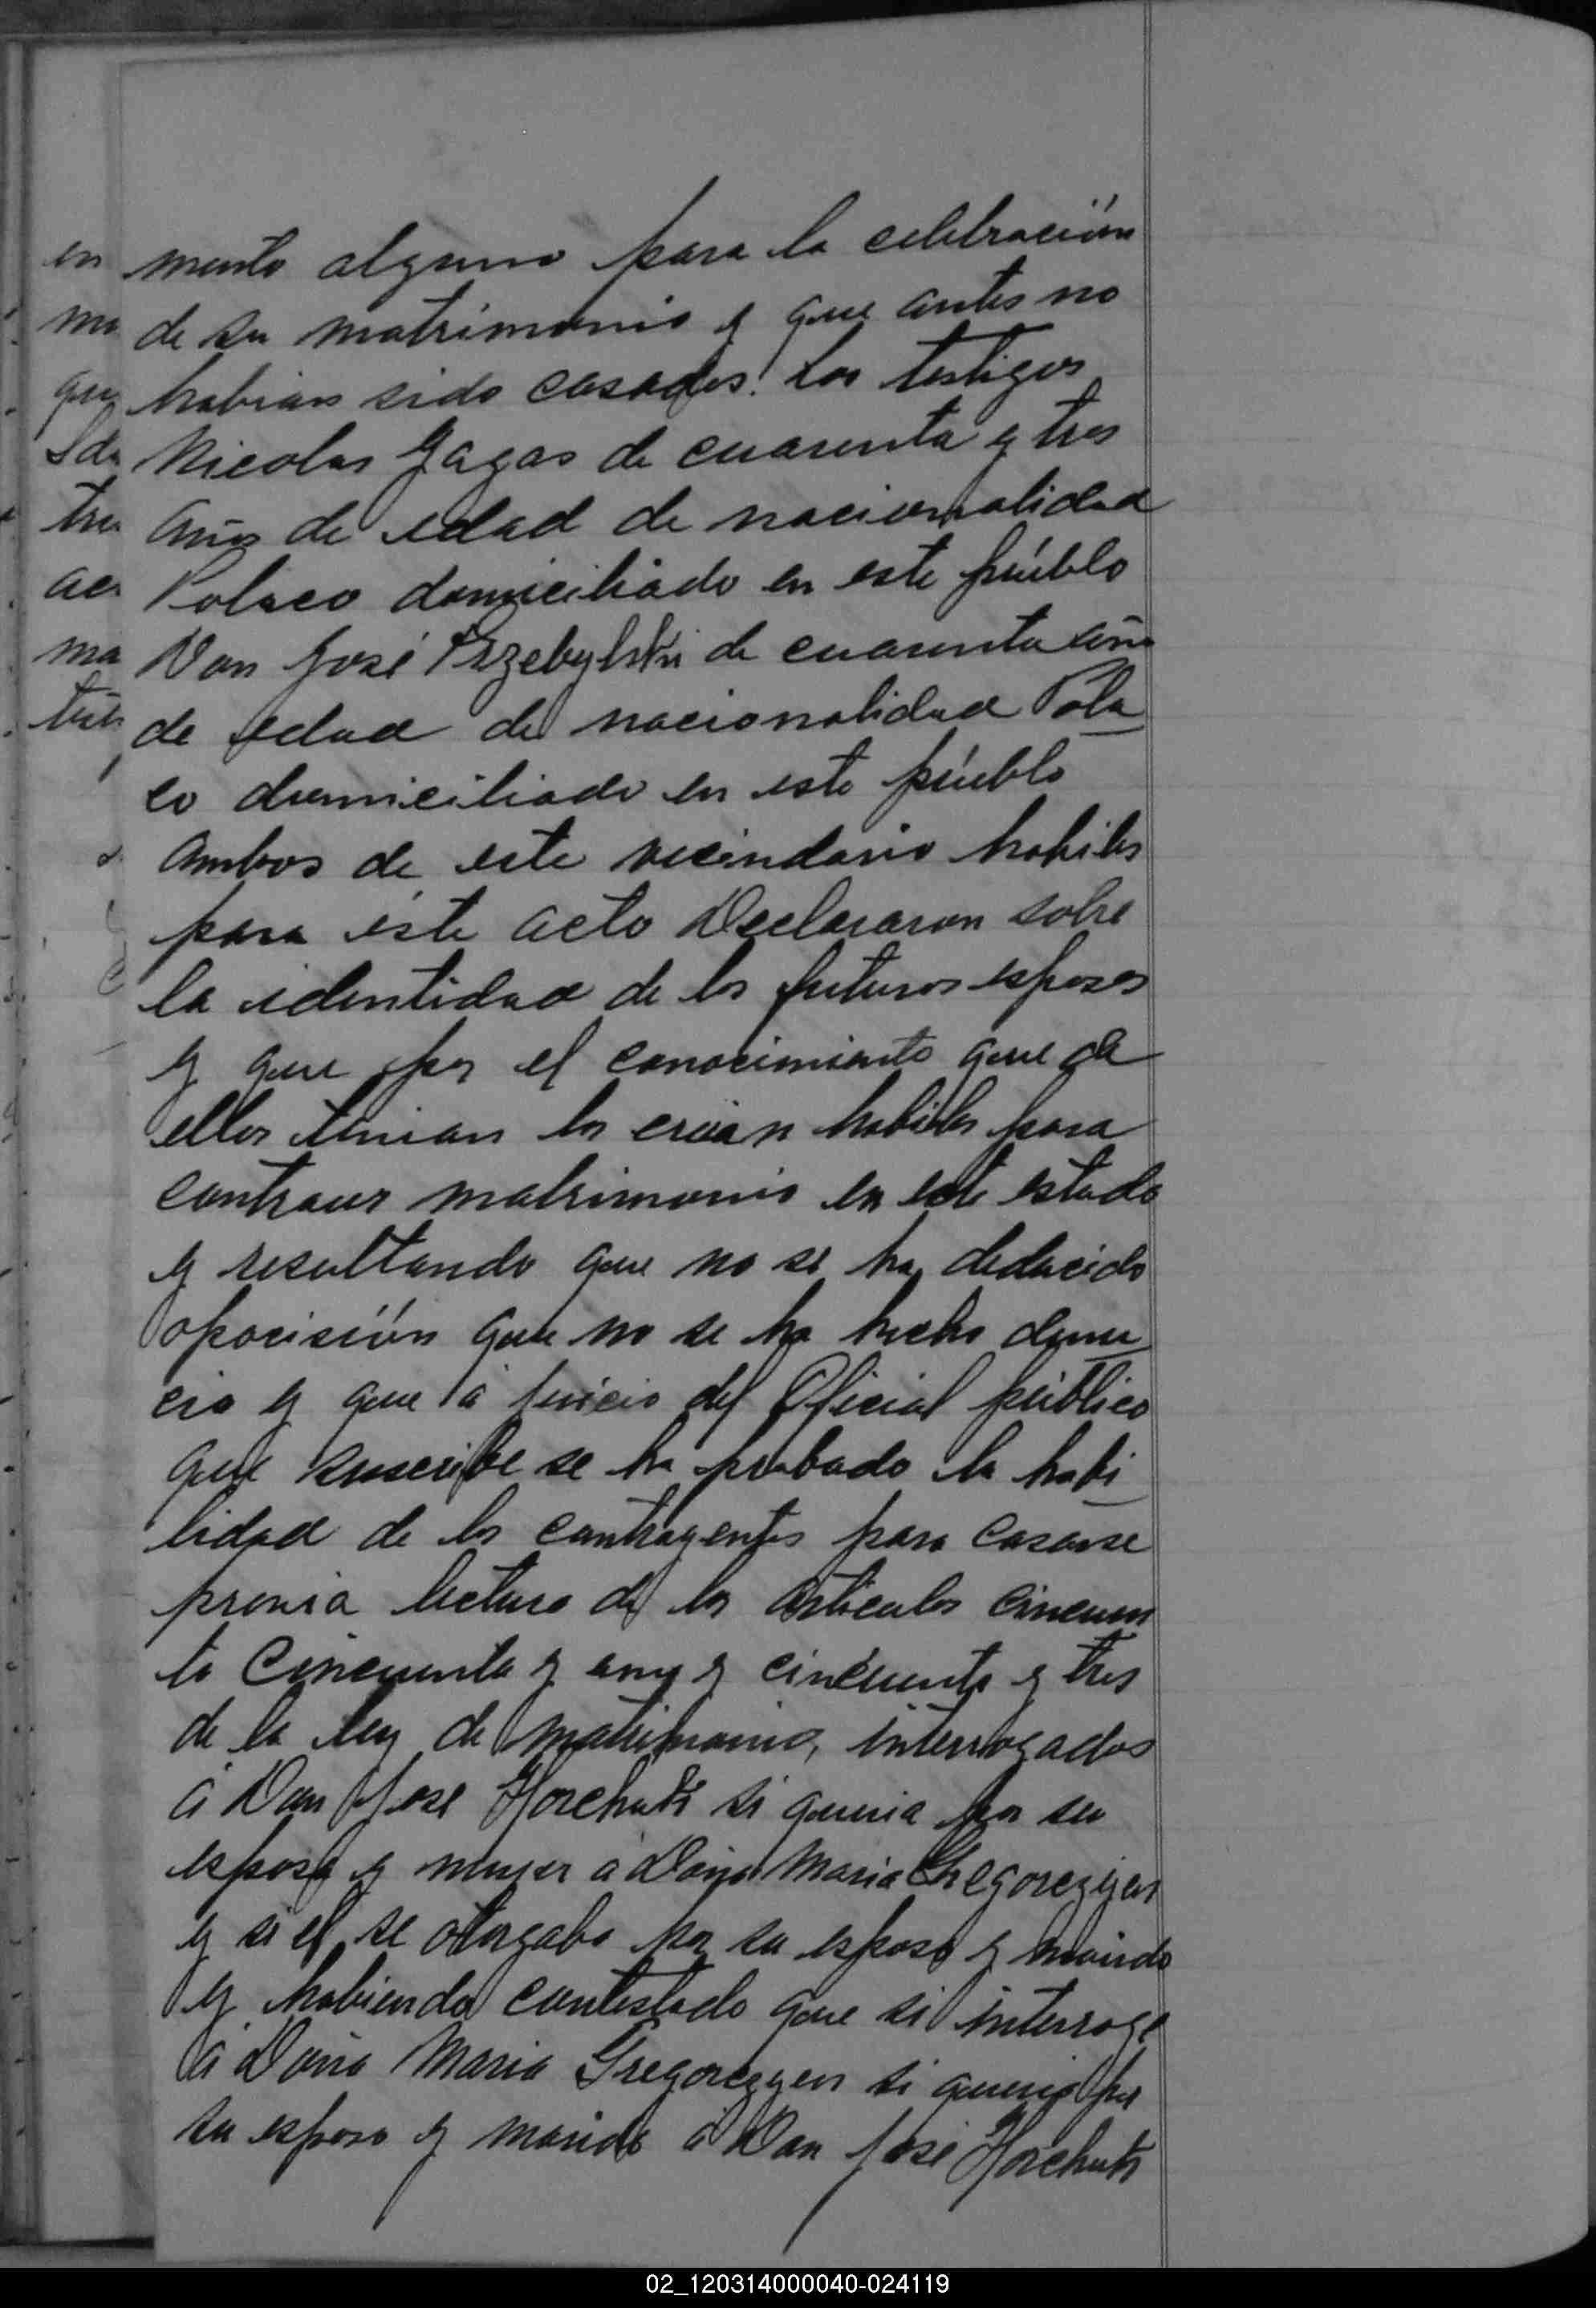 mento alguno para la celebración
de su matrimonio y que antes no
habian sido casados. Los testigos
Nicolas Gagas de cuarenta y tres
años de edad de nacionalidad
Polaco domiciliado en este púeblo
Don José Przebylski de cuarenta año
de edad de nacionalidad Pola
co domiciliado en este púeblo
Ambos de este vecindario habiles
para éste acto Declararon sobre
la identidad de los futuros esposos
y que por el conocimiento que de
ellos tenian los creian habiles para
contraer matrimonio en este estado
y resultando que no se ha deducido
oposisión que no se ha hecho denun
cia y que á juicio del Oficial público
que suscribe se ha probado la habi
lidad de los contrayentes para casarse
previa lectura de los artículos cincuen
ta Cincuenta y uno y cincuenta y tres
de la ley de matrimonio, interrogados
á Don Jose Horchuk si queria por su
esposa y mujer á Doña Maria Gregorezyen
y si el se otorgaba por su esposo y marido
y habiendo contestado que si interrogé
á Doña Maria Gregorezyen si queria por
su esposo y marido á Don José Horchuk
en
mo
que
tre
ma
02_120314000040-024119